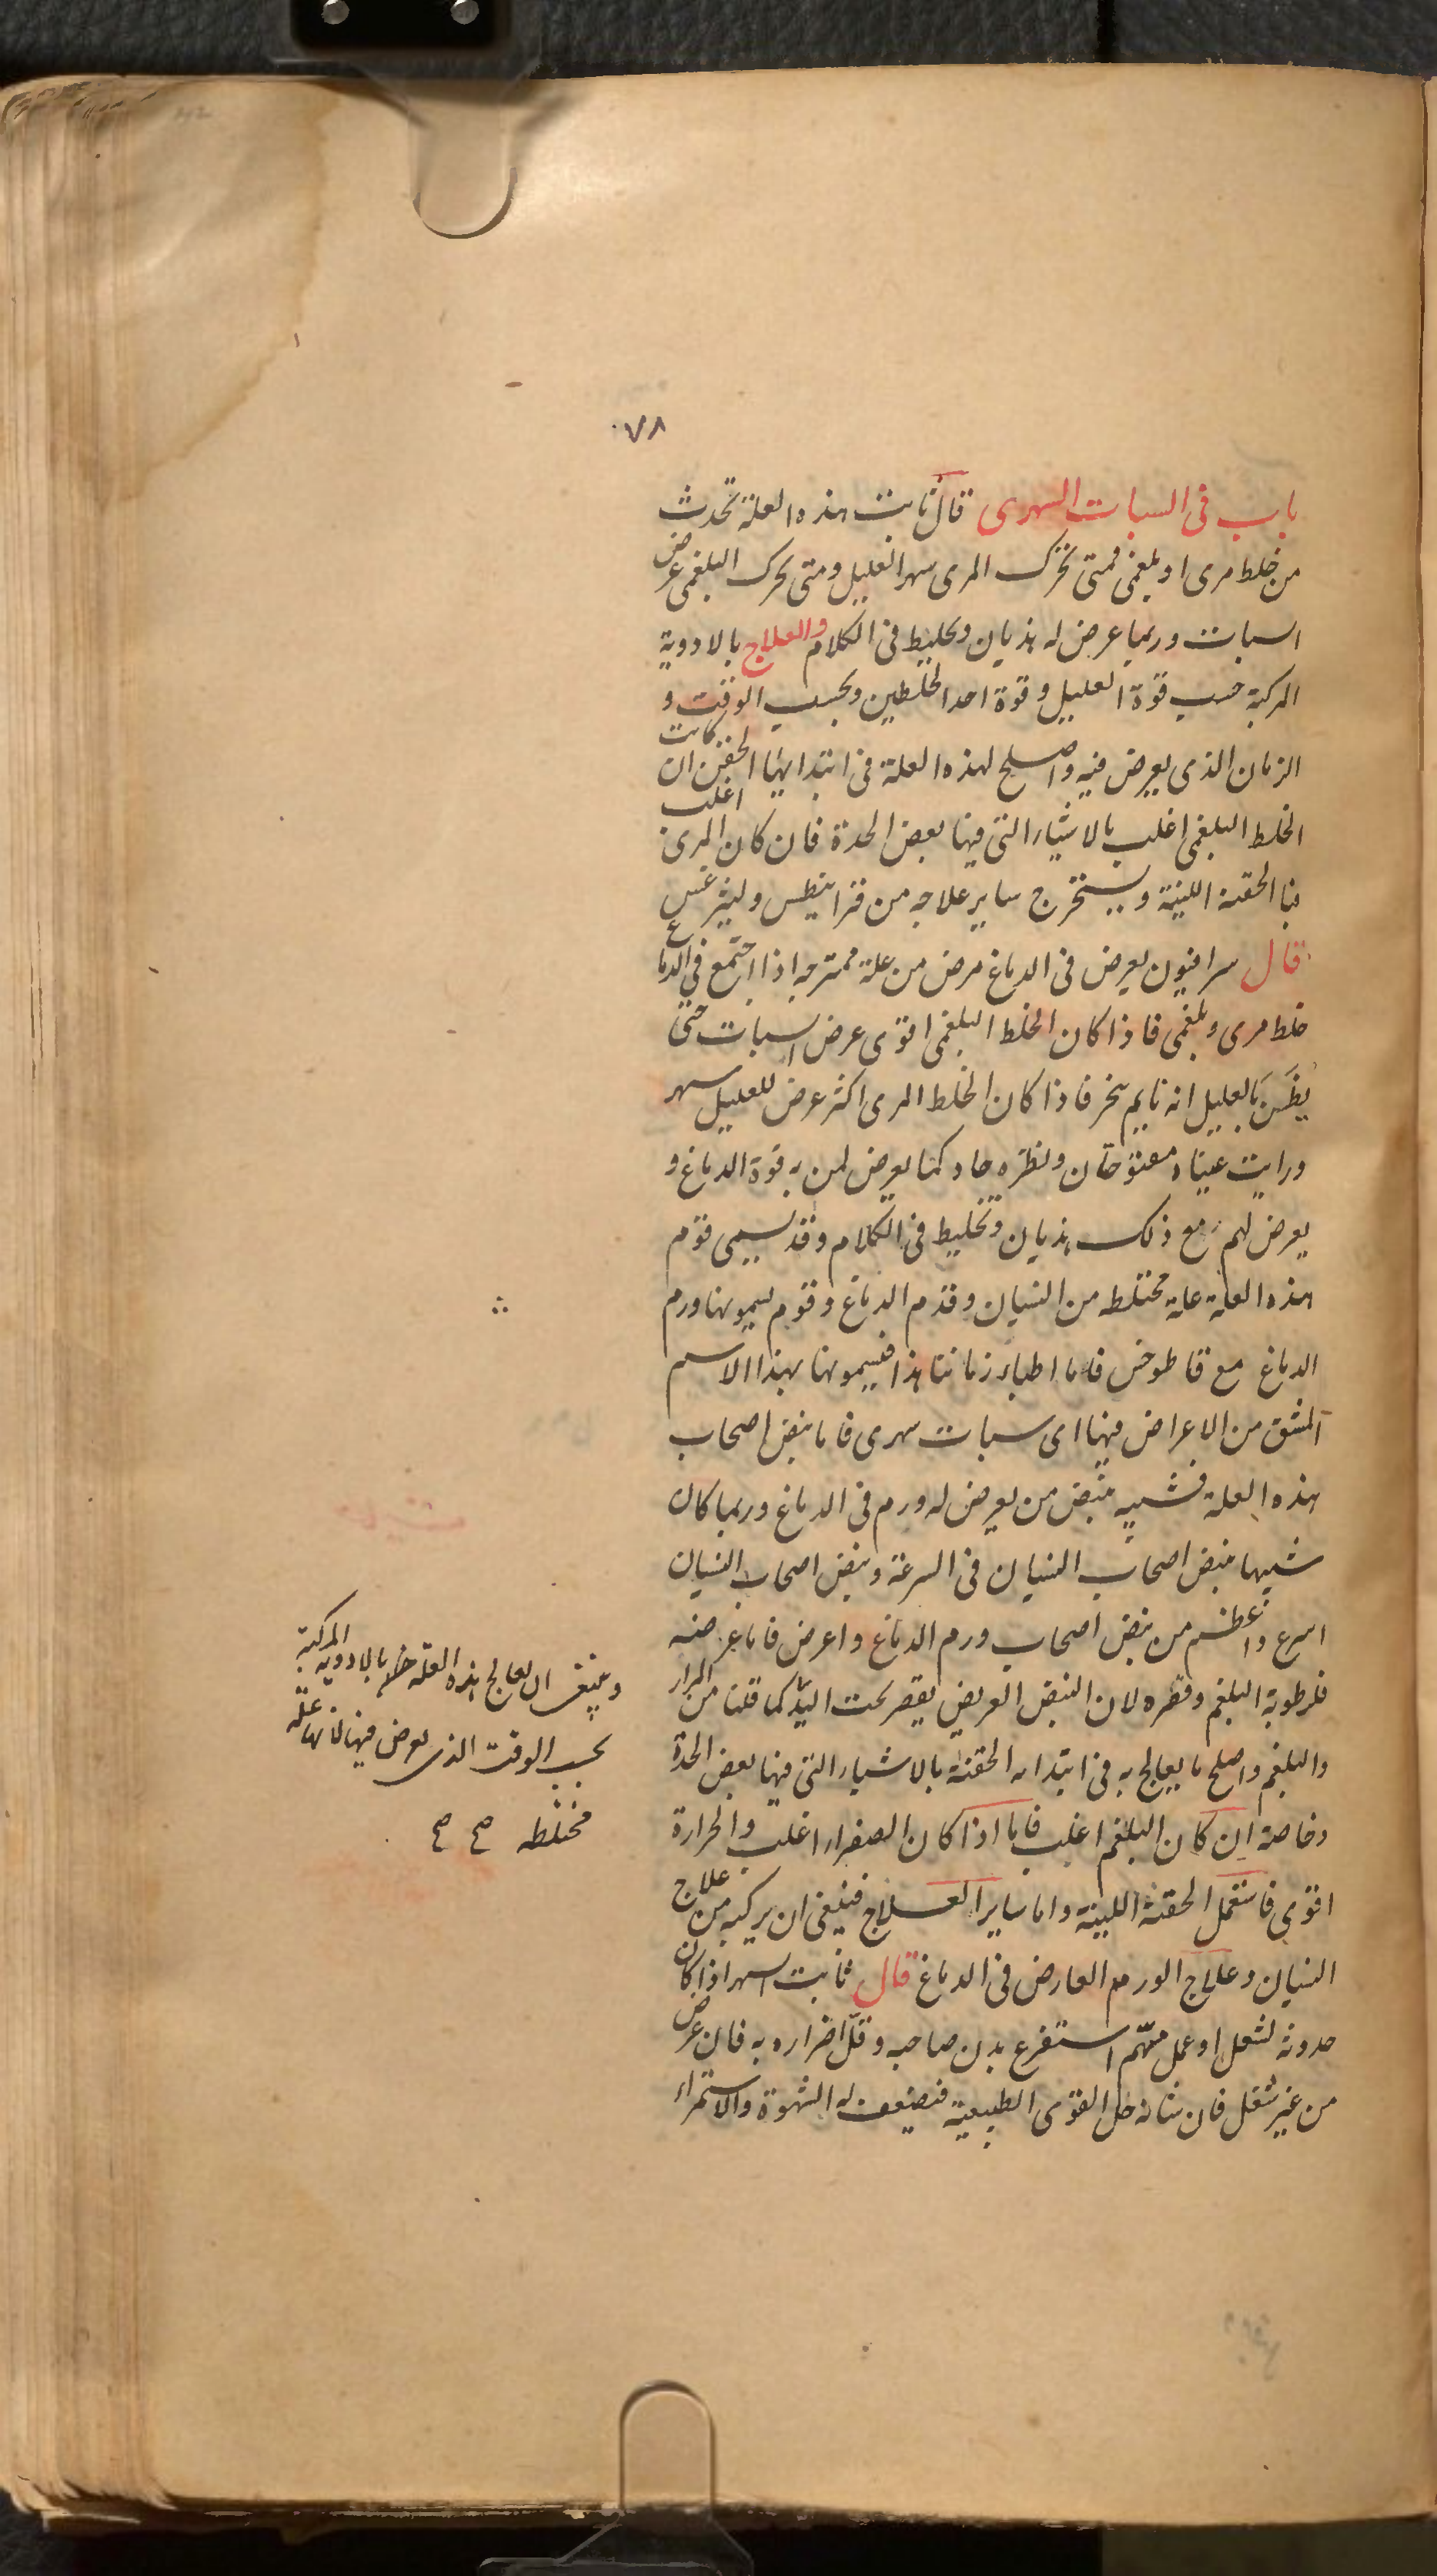 ٧٨
باب فى السبات السهرى قال ثابت هذه العلة تحدث
من خلط مرى او بلغمى فمتى تحرك المرى سهر العليل ومتى تحرك البلغمى عرض
السبات وربما عرض له هذيان وتخليط فى الكلام والعلاج بالادوية
المركبة حسب قوة العليل وقوة احد الخلطين وبحسب الوقت و
الزمان الذى يعرض فيه واصلح لهذه العلة فى ابتدايها الحقن ان كانت
الخلط البلغمى اغلب بالاشياء التى فيها بعض الحدة فان كان المرى اغلب
فبا الحقنه اللينة ويستخرج ساير علاجه من قرانيطس وليثرغس
قال سرافيون يعرض فى الدماغ مرض من علة ممتزجه اذا اجتمع فى الدماغ
خلط مرى وبلغمى فاذا كان الخلط البلغمى اقوى عرض السبات حتى
يظن بالعليل انه نايم ينخر فاذا كان الخلط المرى اكثر عرض للعليل سهر
ورايت عيناه مفتوحتان ونظره حاد كما يعرض لمن به قوة الدماغ و
يعرض لهم مع ذلك هذيان وتخليط فى الكلام وقد يسمى قوم
هذه العلة علة مختلطه من النسيان وقدم الدماغ وقوم يسمونها ورم
الدماغ مع قاطوخس فاما اطباء زماننا هذا فيسمونها بهذا الاسم
المشق من الاعراض فيها اى سبات سهرى فاما نبض اصحاب
هذه العلة فشبيه بنبض من يعرض له ورم فى الدماغ وربما كان
شبيها بنبض اصحاب النسيان فى السرعة ونبض اصحاب النسيان
اسرع واعظم من نبض اصحاب ورم الدماغ واعرض فاما عرضه
فلرطوبة البلغم وقصره لان النبض العريض يقصر تحت اليد كما قلنا من المرار
والبلغم واصلح ما يعالج به فى ابتدايه الحقنة بالاشياء التى فيها بعض الحدة
وخاصة ان كان البلغم اغلب فاما اذا كان الصفراء اغلب والحرارة
اقوى فاستعمل الحقنة اللينة واما ساير العلاج فينبغى ان يركبه من علاج
النسيان وعلاج الورم العارض فى الدماغ قال ثابت السهر اذا كان
حدوثه لشغل او عمل مهم استفرغ بدن صاحبه وقل اضراره به فان عرض
من غير شغل فان شانه حل القوى الطبيعية فضعف له الشهوة والاستمراء
وينبغى ان يعالج هذه العلة بالادوية المركبة
بحسب الوقت الذى يعرض فيها لانها علة
مختلطه صح صح